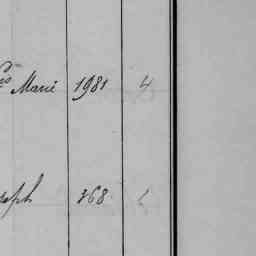 Marie 1981 4
seph 368